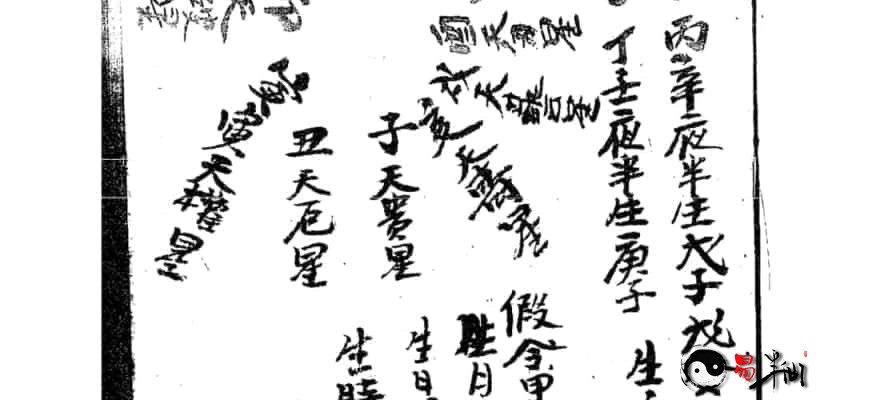 丙辛夜半生戊子戊
丁壬夜半生庚子
生
假令甲
生月
生日
生時
酉天
戌天
亥天壽星
子天贵星
丑天厄星
寅天權星
易半仙